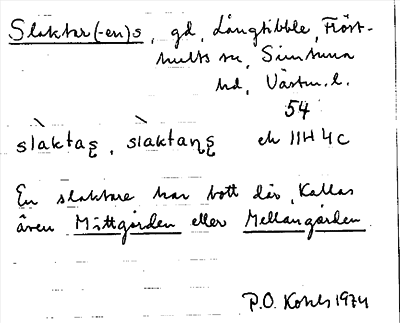 Slaktar(-en)s, gd, Långtibble, Fröst-
hults sn, Simtuna
hd, Västm. l.
54
slaktas, slaktaṇs ek 11H 4c
En slaktare har bott där. Kallas
även Mittgården eller Mellangården
P.O. Kohls 1974